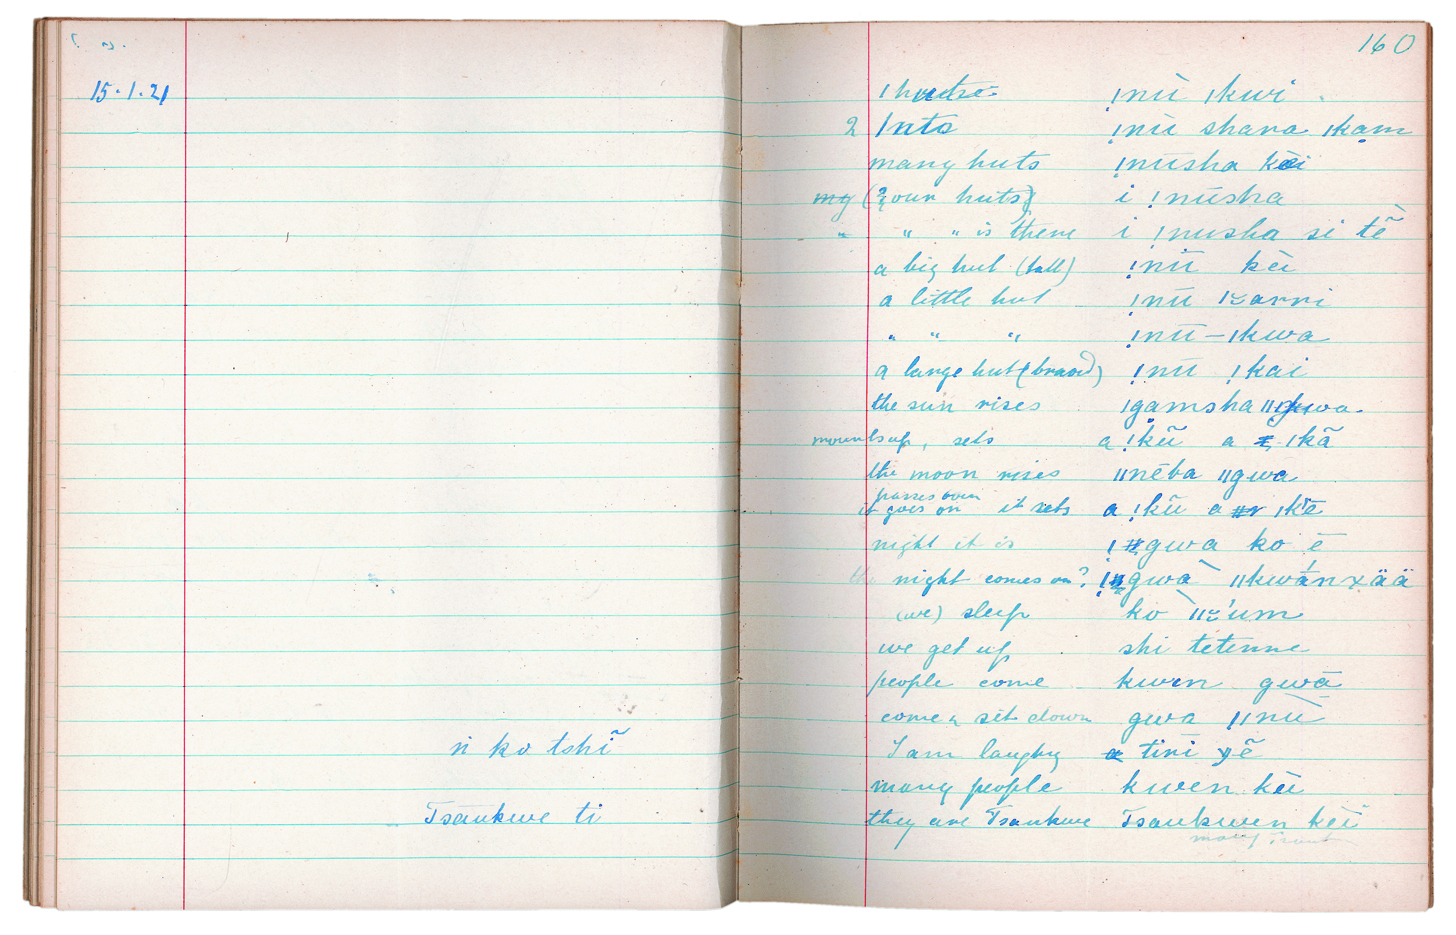 15.1.21
n ko tshĩ
Tsaukwe ti
160
1 hut ǃnū ǀkwi
2 huts ǃnū shara ǀkam
many huts ǃnūsha kēi
my (our huts) i ǃnūsha
" " " is there i ǃnusha si tẽ
a big hut (tall) ǃnū kèi
a little hut ǃnū
" " " ǃnū – ǀkwa
a large hut (broad) ǃnū ǃkai
the sun rises ǀgamsha ǁgwa
mounts up, sets a ǃkũ a ǀkã
the moon rises ǁnēba ǁgwa
passes over
it goes on it sets a ǃkū a ǀkē
night it is gwa ko ē
the night comes on? gwà ǁkwánxää
(we) sleep ko
we get up shi tetenne
people come kwen gwā
come & sit down gwa ǁnū
I am laughing tiri yẽ
many people kwen kēi
they are Tsaukwe Tsaukwen kèi
many